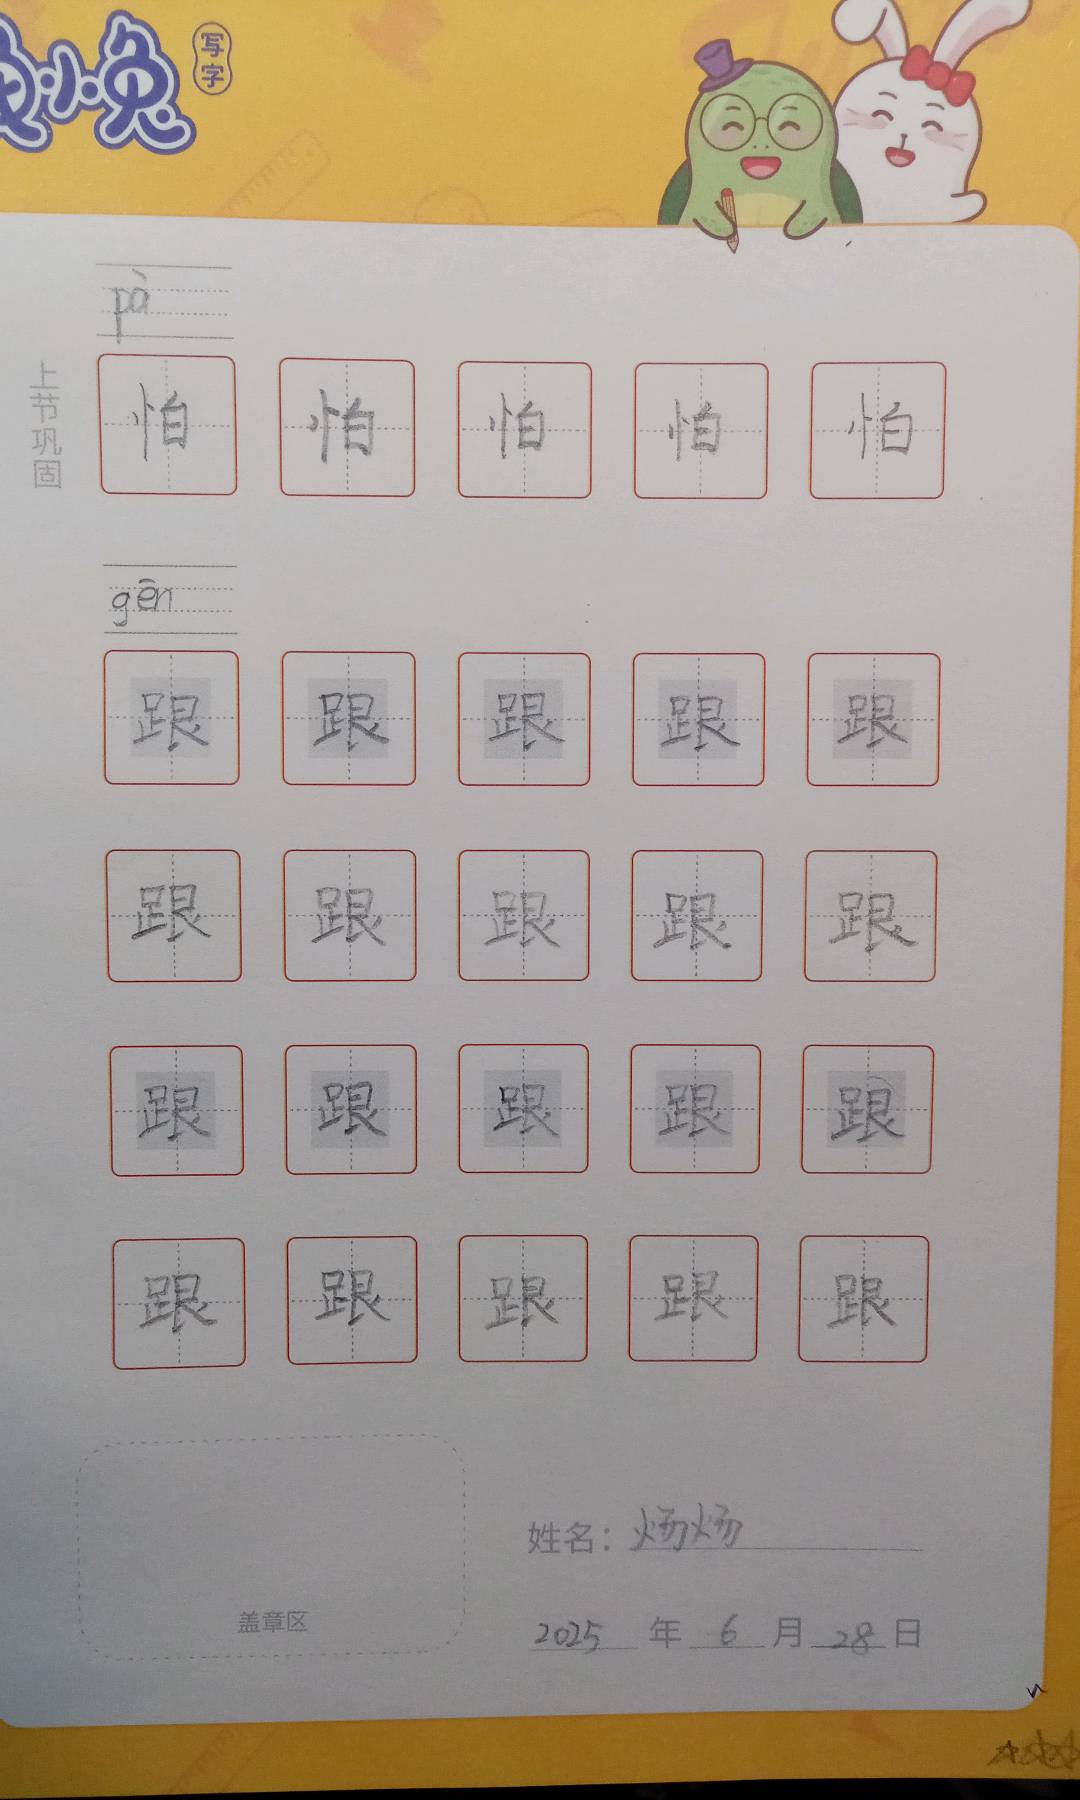 小兔
写字
pà
上节巩固
怕 怕 怕 怕 怕
gēn
跟 跟 跟 跟 跟
跟 跟 跟 跟 跟
跟 跟 跟 跟 跟
跟 跟 跟 跟 跟
姓名：炀炀
盖章区
2025 年 6 月 28 日